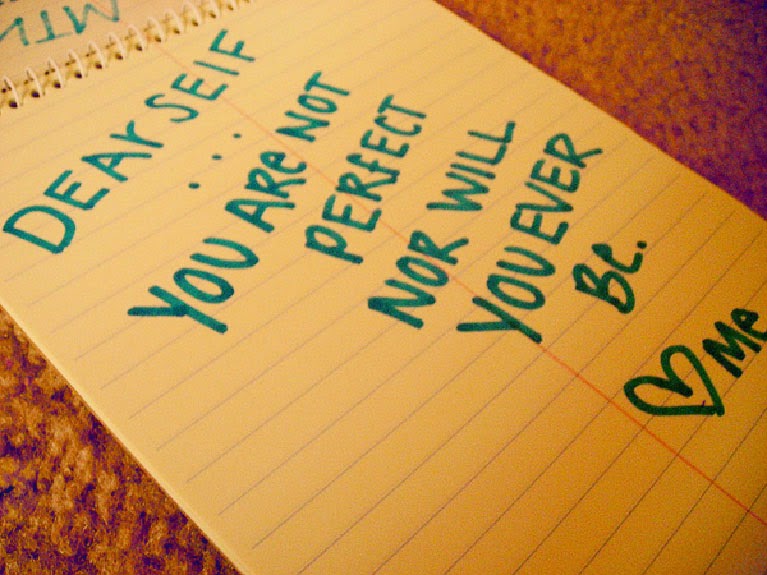 MTV
DEAr SElF
...
YOU ARe NOT
PERfECT
NOR WILL
YOU EVER
Be.
♡ Me